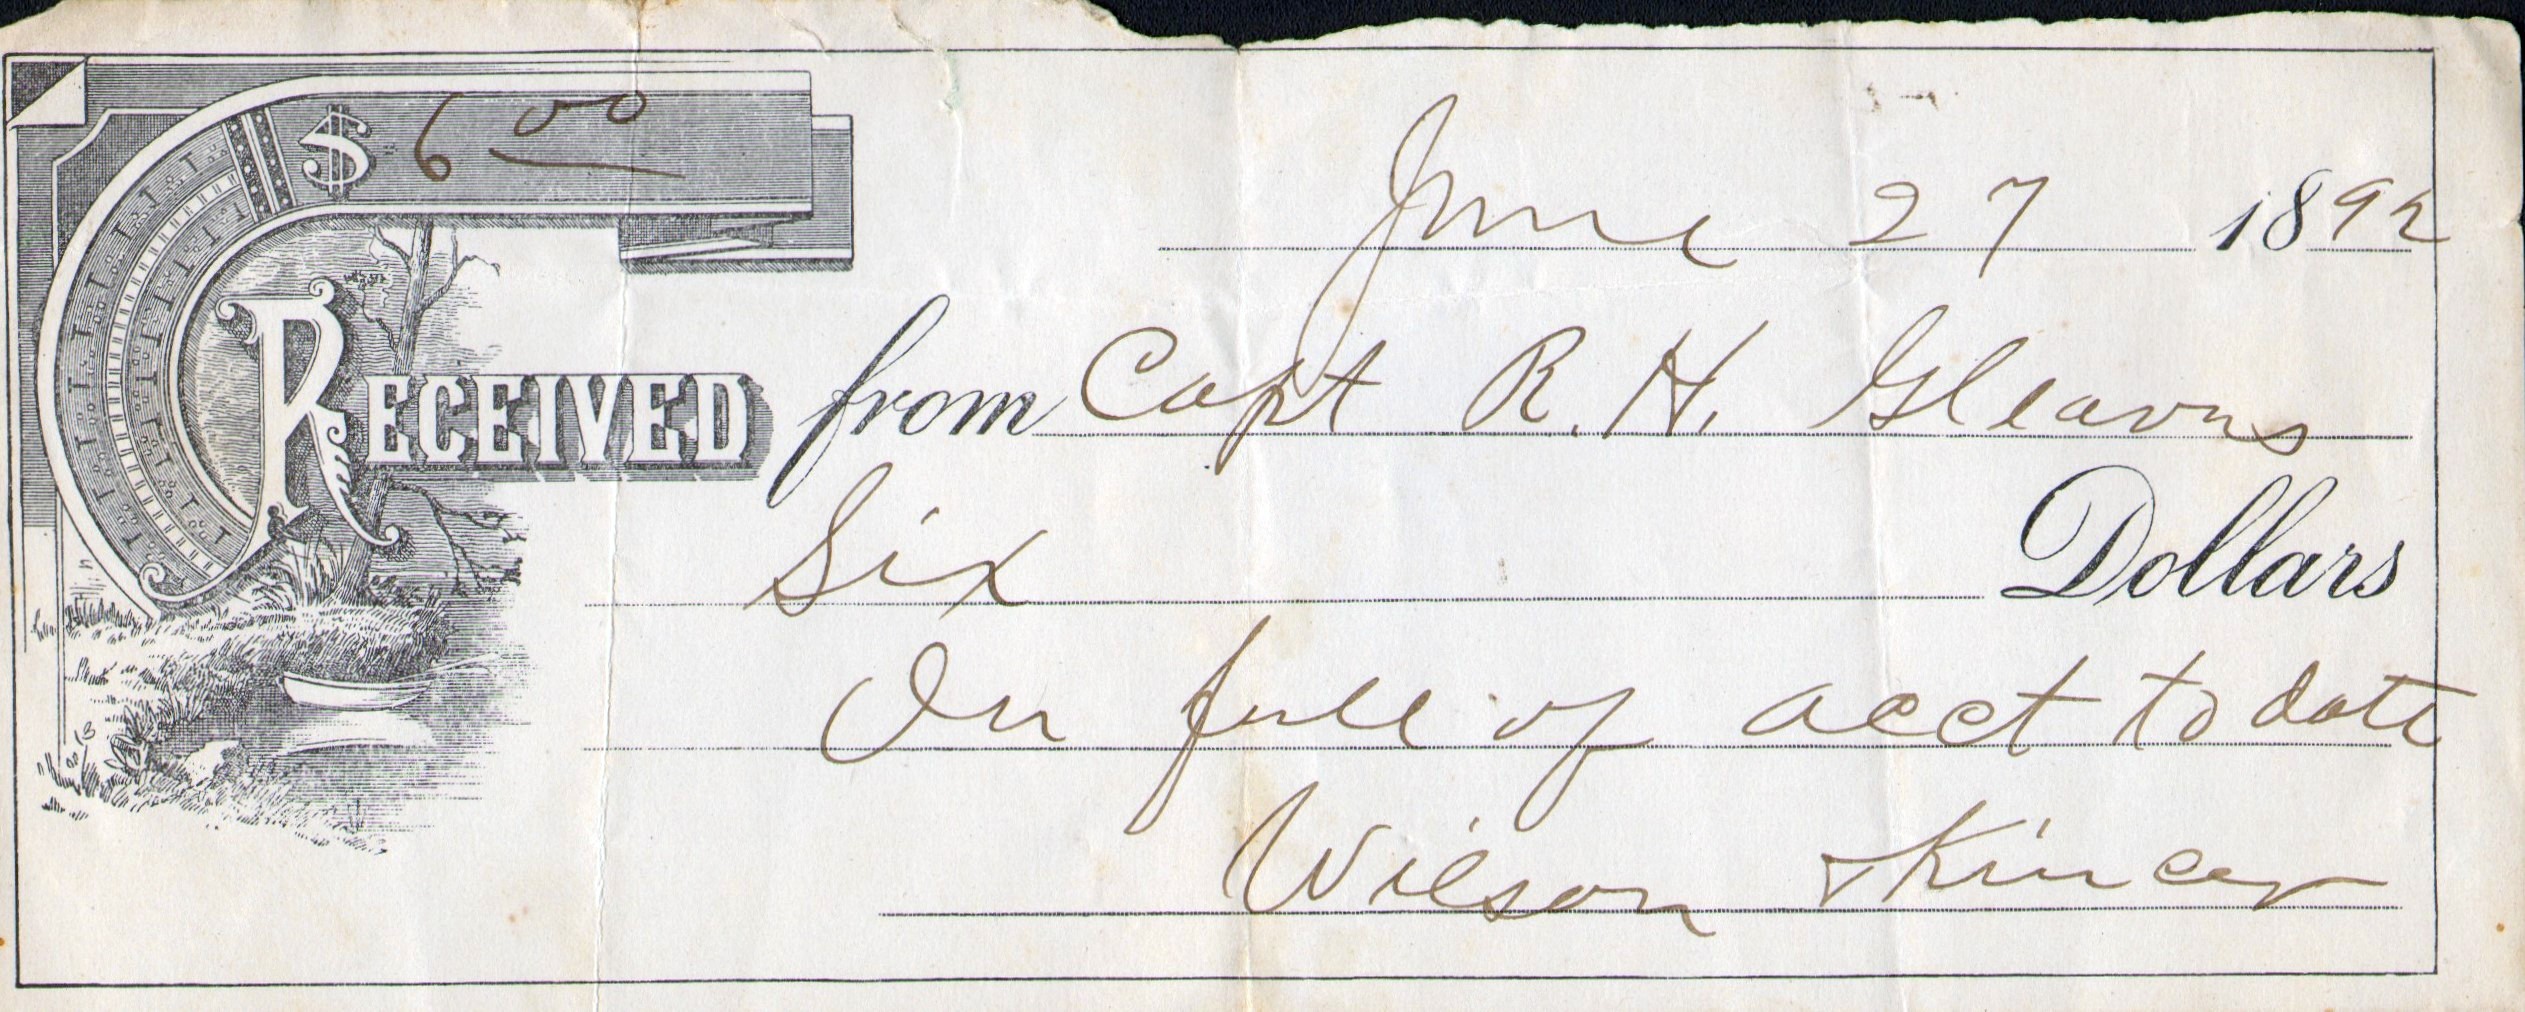 $ 6 00
June 27 1892
RECEIVED from Capt R. H. Gleaves
Six Dollars
In full of acct to date
Wilson Kincer